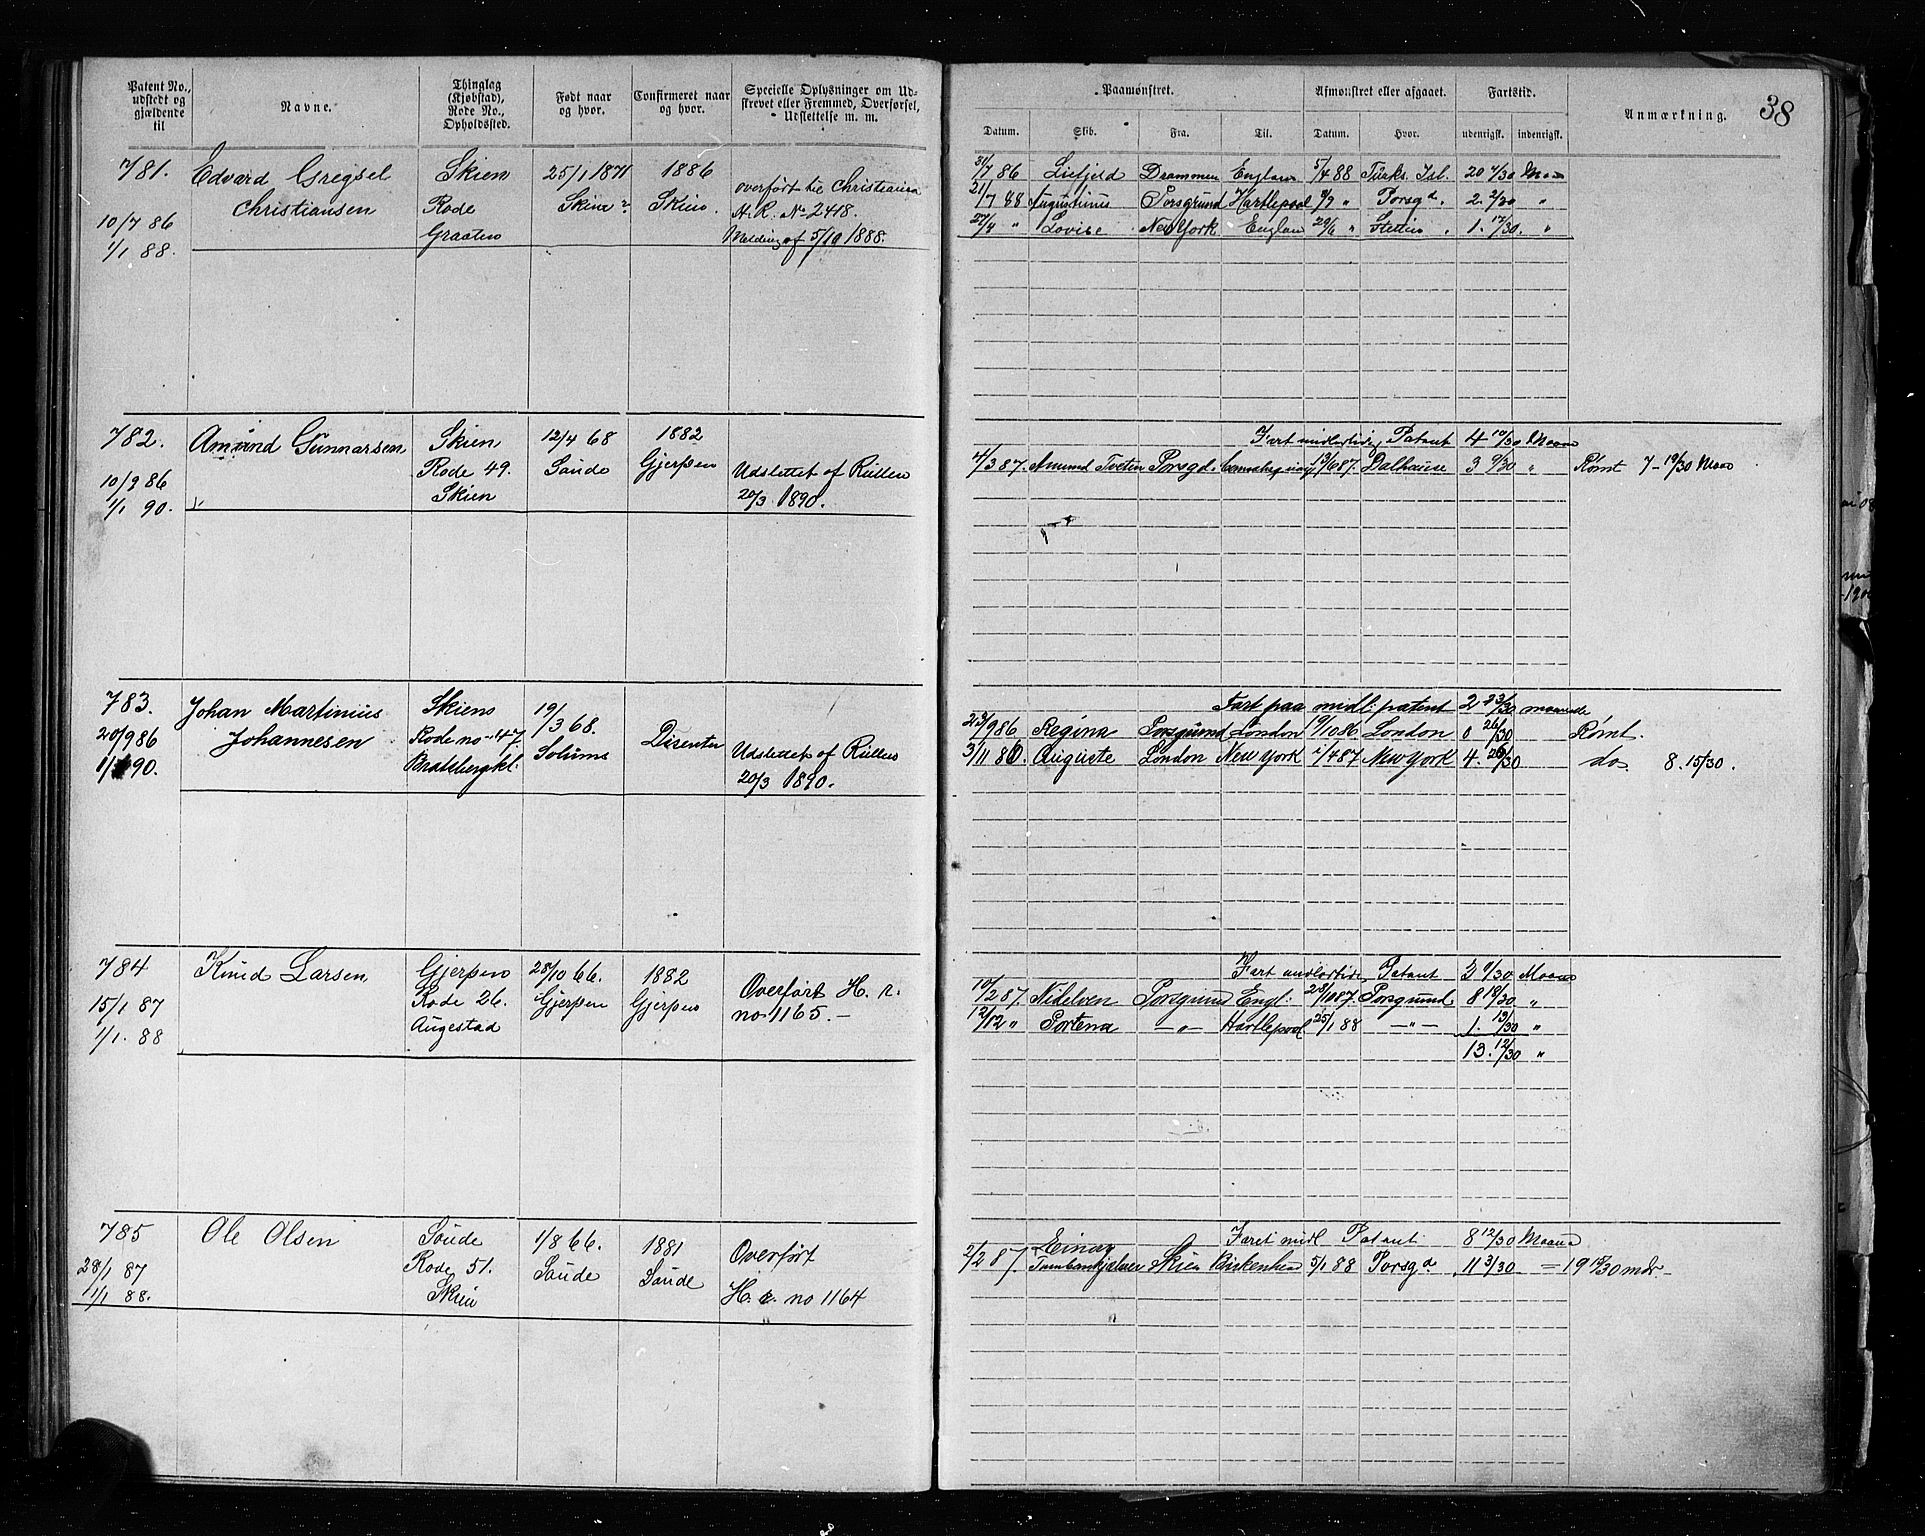 Patent No., udstedt og gjældende til
Navne.
Thinglag (Kjøbstad), Rode No., Opholdssted.
Født naar og hvor.
Confirmeret naar og hvor.
Specielle Oplysninger om Udskrevet eller Fremmed, Overførsel, Udslettelse m. m.
Paamønstret.
Afmønstret eller afgaaet.
Fartstid.
Anmærkning.
38
Datum.
Skib.
Fra.
Til.
Datum.
Hvor.
udenrigsk.
indenrigsk.
781.
10/7 86
1/1 88.
Edvard Gregsel
Christiansen
Skien
Rode
Graaten
25/1 1871
Skien
1886
Skien.
overført til Christiania
H. R. No 2418.
Melding af 5/10 1888.
31/7 86 Liefjeld Drammen England 5/4 88 Turks. Isl. 20 4/30 Maan
21/7 88 Augustinus Porsgrund Hartlepool Porsgd. 2.
27/4 " Lovise New York Englan 29/6 " Stettin 1. 17/30. "
782.
10/9 86
1/1 90.
Amund Gunnarsen
Skien
Rode 49.
Skien
12/4 68
Saude
1882
Gjerpen
Udslettet af Rullen
20/3 1890.
Fart midlertidig Patent 4 10/30 Maan
4/3 87. Amund Tveten Porsgd. 13/6 87. Dalhousie 3 9/30 " Rømt 7 - 19/30 Maan
783.
20/9 86
1/1 90.
Johan Martinius
Johannesen
Skiens
Rode no 147
Bratsbergkl.
19/3 68.
Solums
Disenter
Udslettet af Rullen
20/3 1890.
Fart paa midl: patent 2 23/30 maanede
23/9 86 Regina Porsgrund London 19/10 86 London 0 26/30 Rømt.
3/11 86 Auguste London New York 1/4 87 New York 4. 26/30 do. 8. 15/30.
784
15/1 87
1/1. 88
Knud Larsen
Gjerpen
Rode 26.
Augestad
28/10 66.
Gjerpen
1882
Gjerpen
Overført H. r.
no 1165. -
Fart midlertidi. Patent 3 /30 Maan
10/2 87. Nidelven Porsgrund Engl: 28/10 87. Porsgrund 8 19/30 "
12/12 " Portena - " - Hartlepool 25/1 88 - " - 1. 13/30 "
13. 12/30 "
785
28/1 87
1/1 88.
Ole Olsen
Saude
Rode 51.
Skien
1/8 66.
Saude
1881
Saude
Overført
H. r. no 1164
Faret midl Patent 8 12/30 Maana
2/2 87. Einar
Tambarskjelver Skien Birkenhea 5/1 88 Porsgd 11 3/30 = 19 15/30 mdr.